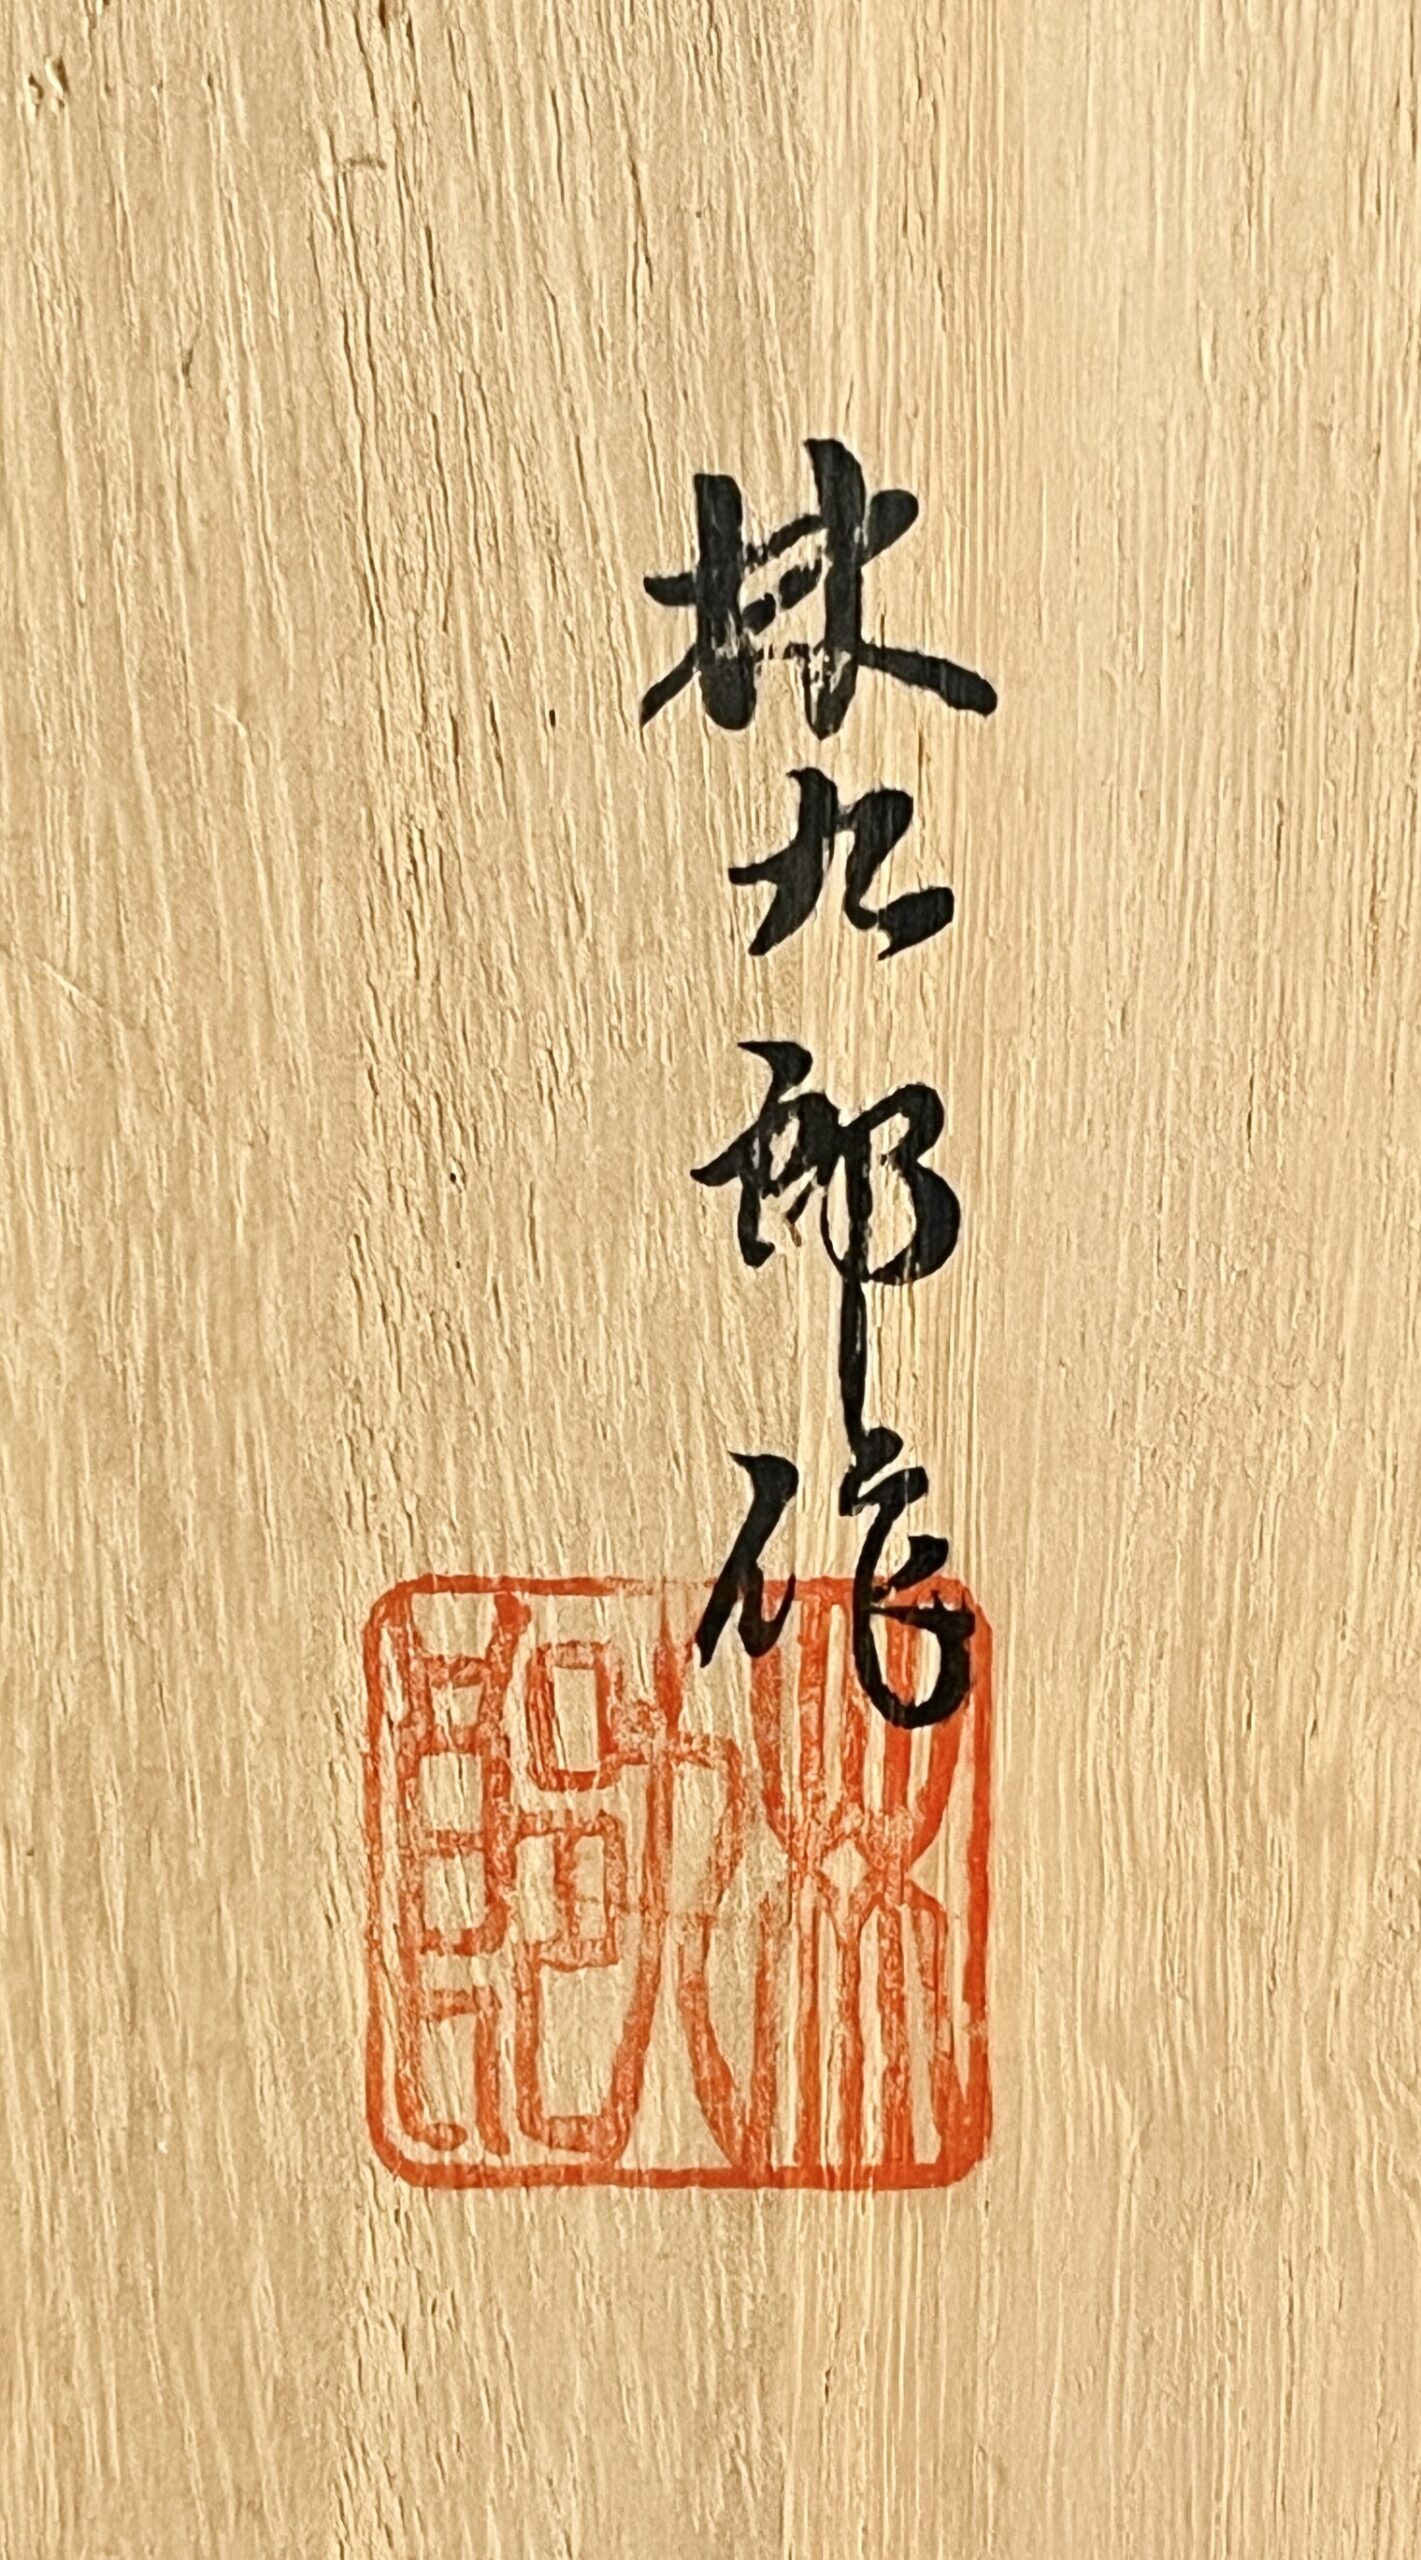 林九郎作
林九郎